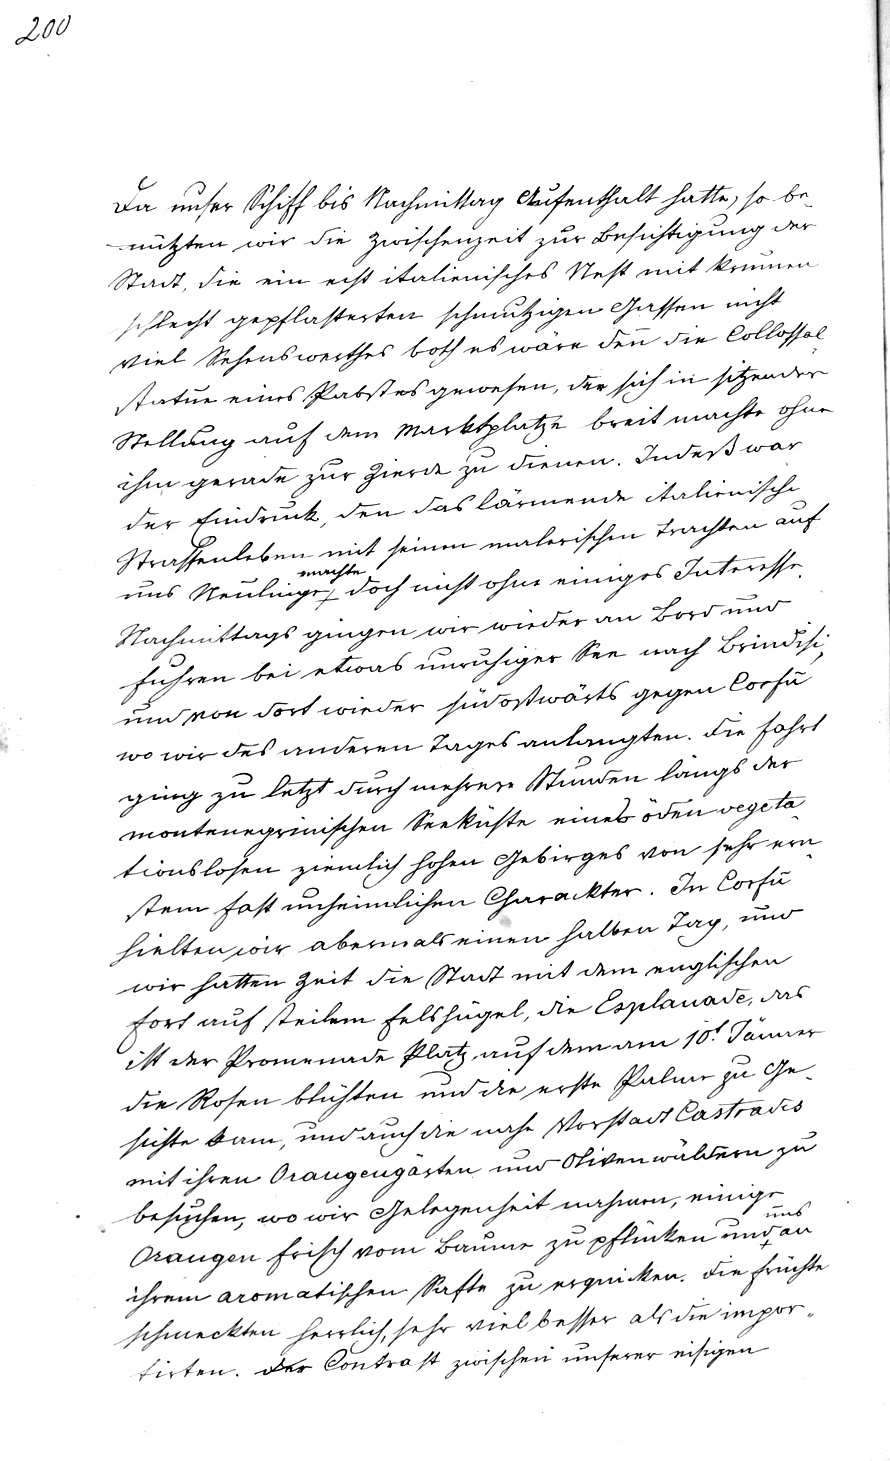 200
Da unser Schiff bis Nachmittag Aufenthalt hatte, so be-
nützten wir die Zwischenzeit zur Besichtigung der
Stadt, die ein echt italienisches Nest mit krumen
schlecht gepflasterten schmutzigen Gassen nicht
viel Sehenswerthes both es wäre den̄ die Collossal
statue eines Pabstes gewesen, der sich in sitzender
Stellung auf dem Marktplatze breit machte ohne
ihm gerade zur Zierde zu dienen. Indeß war
der Eindruck, den das lärmende italienische
Strassenleben mit seinen malerischen Trachten auf
uns Neulinge machte doch nicht ohne einiges Interesse.
Nachmittags gingen wir wieder an Bord und
fuhren bei etwas unruhiger See nach Brindisi,
und von dort wieder südostwärts gegen Corfu
wo wir des anderen Tages anlangten. Die Fahrt
ging zu letzt durch mehrere Stunden längs der
montenegrinischen Seeküste eines öden vegeta-
tionslosen ziemlich hohen Gebirges von sehr ern-
stem fast unheimlichen Charackter. In Corfu
hielten wir abermals einen halben Tag, und
wir hatten Zeit die Stadt mit dem englischen
Fort auf steilem Felshügel, die Esplanade, das
ist der Promenade Platz auf dem am 10t. Jänner
die Rosen blühten und die erste Palme zu Ge-
sichte kam, und auch die nahe Vorstadt Castrades
mit ihren Orangengärten und Olivenwäldern zu
besuchen, wo wir Gelegenheit nahmen, einige
Orangen frisch vom Baume zu pflücken und uns an
ihrem aromatischen Safte zu erquicken. Die Früchte
schmeckten herrlich, sehr viel besser als die impor-
tirten. Der Contrast zwischen unserer eisigen